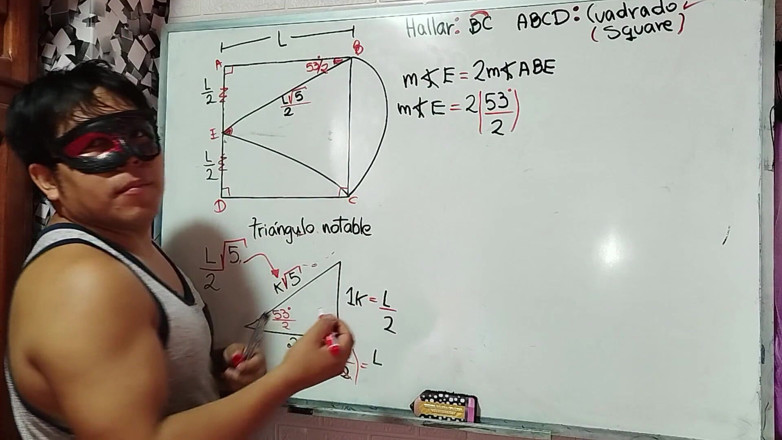 Hallar: BC ABCD: Cuadrado
(Square)
L
A 53°/2 B
L/2
L√5/2
E
L/2
D C
m∡E = 2m∡ABE
m∡E = 2(53°/2)
triángulo notable
L/2 √5
K√5
53°/2
1K = L/2
) = L